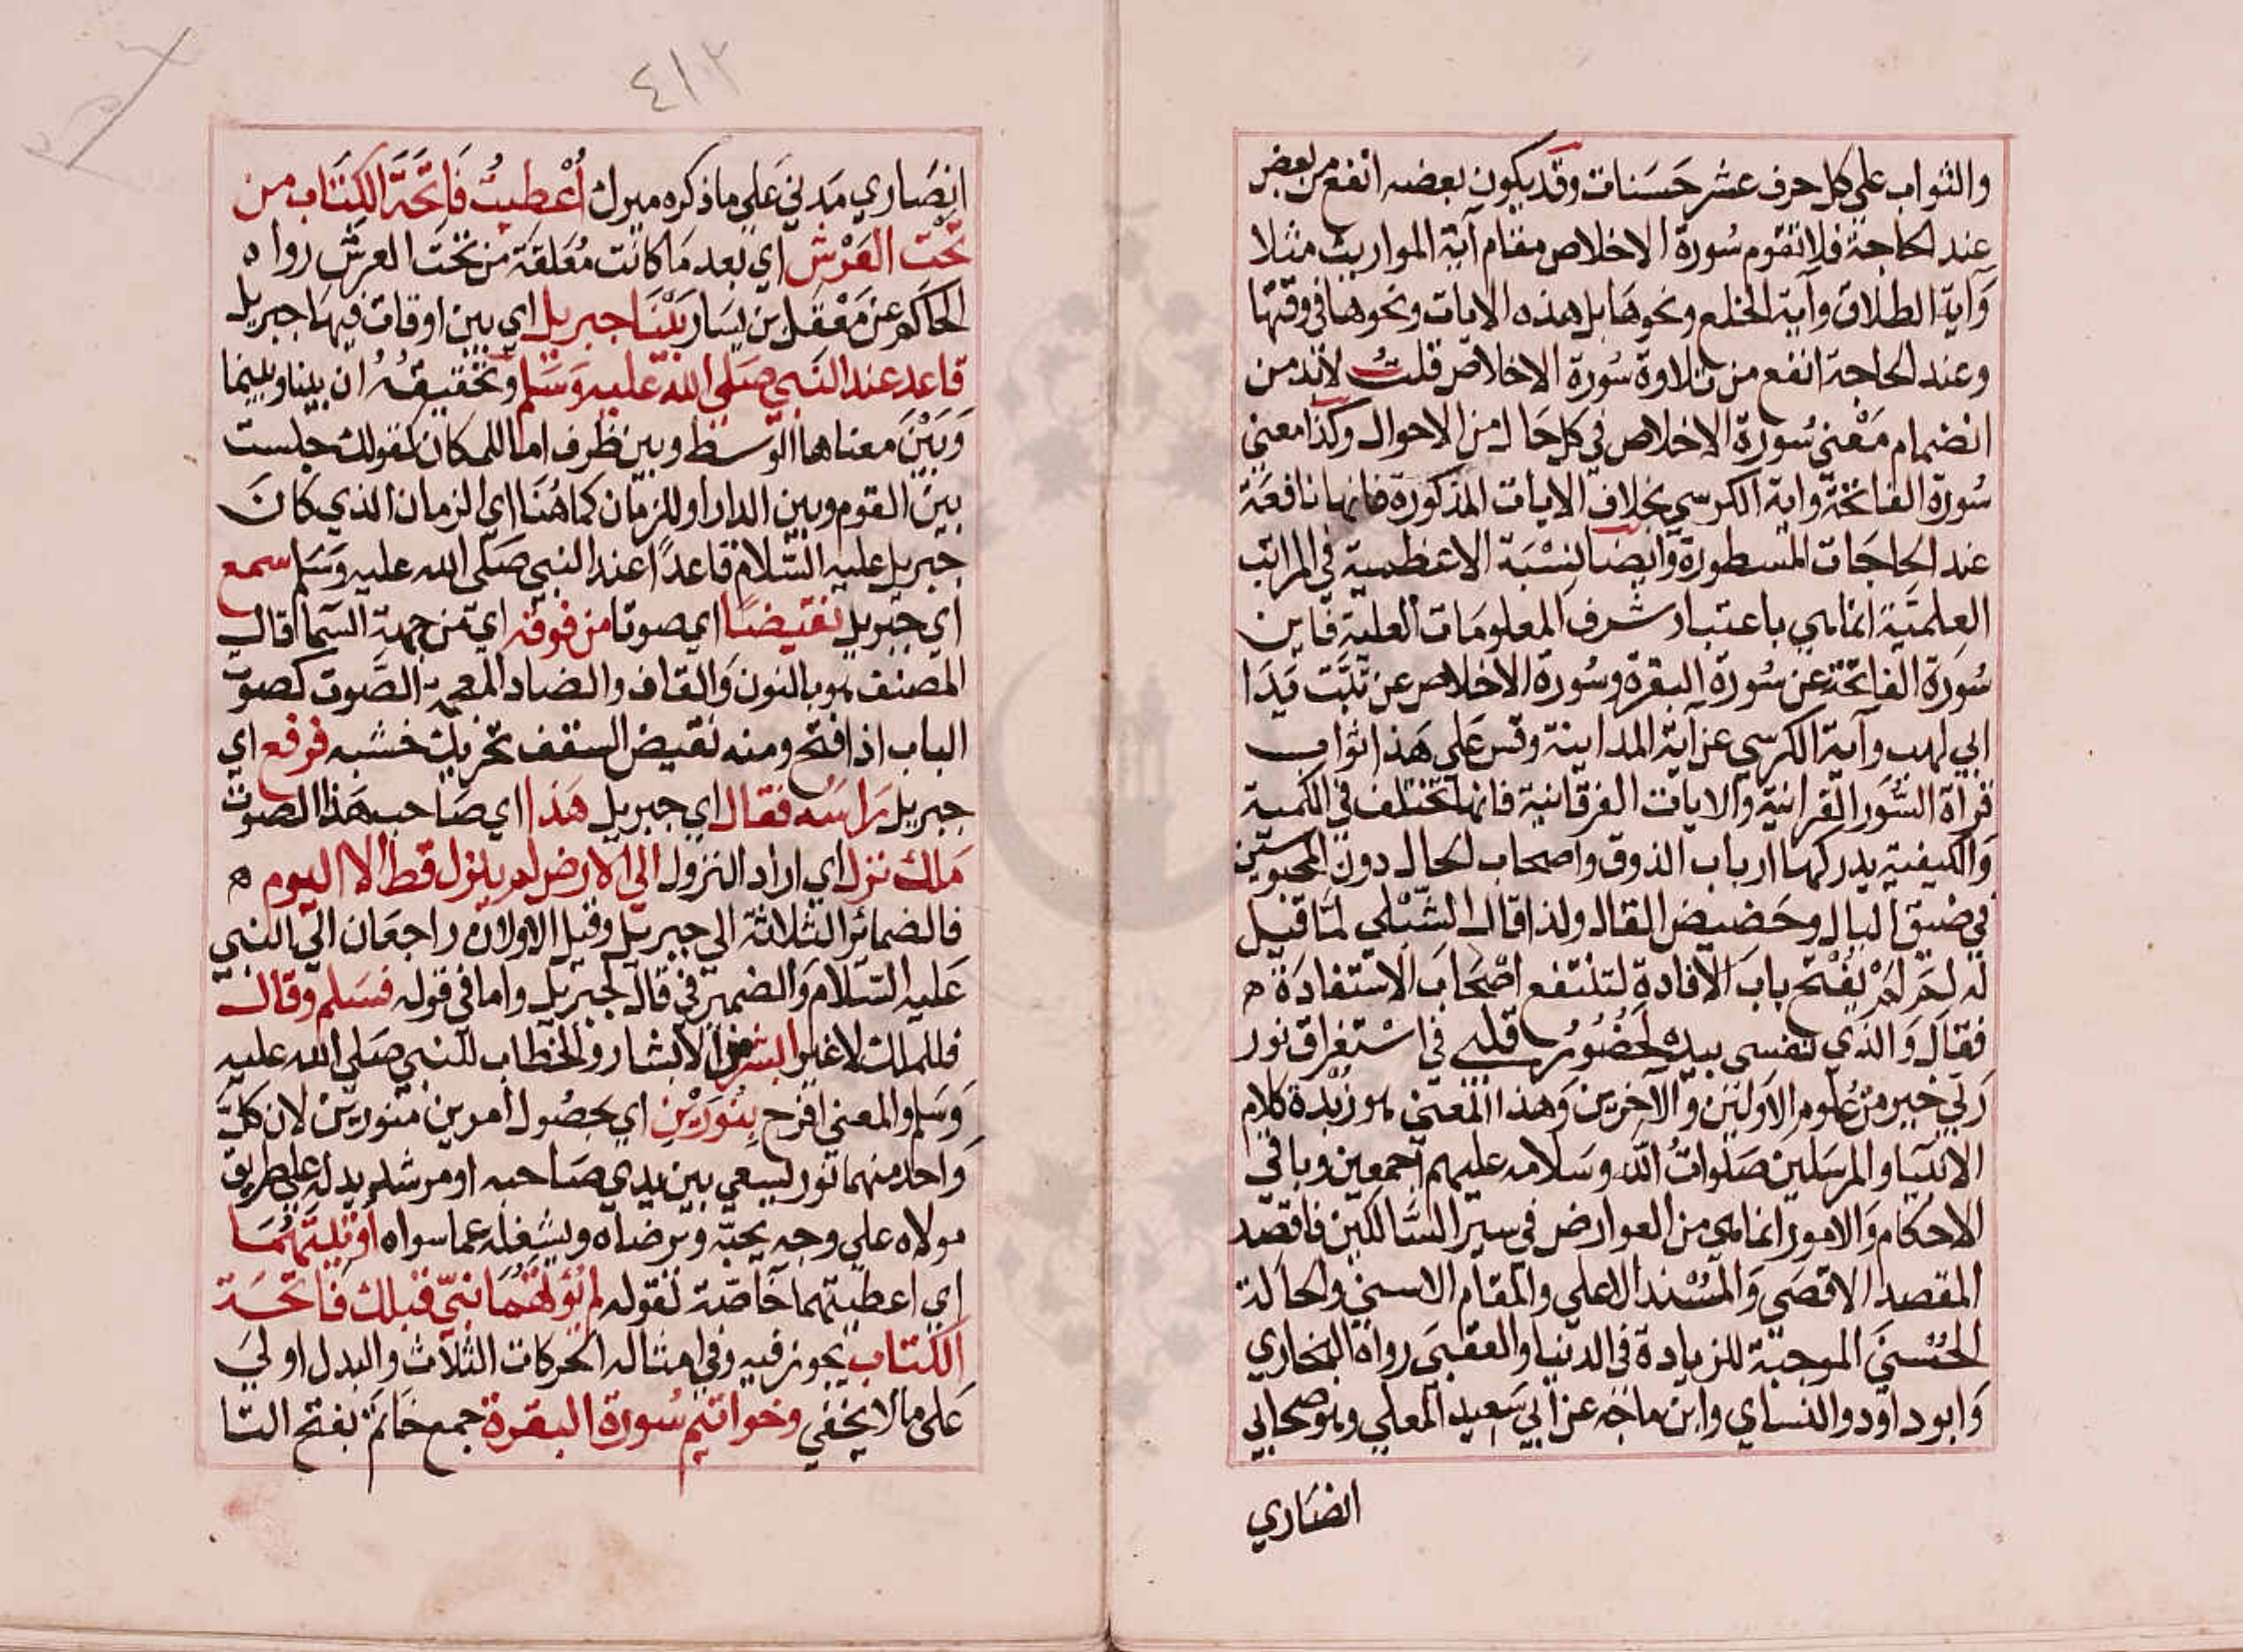 والثواب على كل حرف عشر حسنات وقد يكون بعضه انفع من بعض
عند الحاجة فلا تقوم سُورة الاخلاص مقام آية المواريث مثلا
وَآية الطلاق وآية الخلع ونحوها بل هذه الايات ونحوها في وقتها
وعند الحاجة انفع من تلاوة سُورة الاخلاص قلتُ لابد من
انضمام مَعْنى سُورة الاخلاص في كل حَال من الاحوال وكذا معنى
سُورة الفاتحة واية الكرسي بخلاف الايات المذكورة فانها نافعَة
عند الحاجَات المسطورة وايضا لنسْبَة الاعظمية في المراتب
العلميَّة انما هي باعتبار شرف المعلومَات العلية فاين
سُورة الفاتحة عن سُورة البقرة وسُورة الاخلاص عن تبَّت يَدَا
ابي لهب وآية الكرسي عن آية المداينة وقس عَلى هَذا ثواب
قراة السُّوَر القرانية والايات الفرقانية فانها تختلف في الكمية
وَالكيفية يدركها ارباب الذوق واصحاب الحال دون المحبوسين
في ضيق البال وحَضيض القال ولذا قال الشبْلي لمّا قيل
له لمَ لمْ يَفْتح بابَ الافادة لتنتفع اصْحَاب الاسْتفادَة ه
فقالَ وَالذي نفسي بيده لحُضُورُ قلبي في اسْتغراق نور
رَبّي خير من عُلوم الاوّلين وَالآخرين وَهذا المعنى هو زبْدة كلام
الانبيا والمرسَلين صَلَواتُ الله وسَلامه عليهم اجمعين وباقي
الاحكام وَالامور انما هي من العوارض في سير السَّالكين فاقصد
المقصد الاقصَى وَالمسْند الاعلى والمقام الاسنى والحَالة
الحُسْنى الموجبَة للزيادة في الدنيا والعقبَى رواه البخاري
وَابو داود والنساي وابن ماجَه عن ابي سَعيد المعلى وهو صحابي
انصَاري
٤١٢
انصَاري مَدني عَلى ما ذكره ميرك أُعْطيتُ فَاتحَةَ الكتَاب من
تحْت العَرْش اي بعد مَا كانت مُعَلقة من تحتَ العرش رواه
الحَاكم عن مَعْقل بن يسَار بَيْنَا جبريل اي بين اوقات فيهَا جبريل
قاعد عند النَّبي صَلى الله عليه وَسَلم وتحقيقهُ ان بينا وبينما
وَبَيْنَ معناها الوسط وبين ظرف اما للمكان كقولك جلست
بين القوم وبين الدار او للزمَان كما هُنَا اي الزمان الذي كانَ
جبريل عليه السّلام قاعداً عند النبي صَلى الله عليه وَسَلم سمع
اي جبريل نقيضًا اي صوتا من فوقه اي من جهة السّما قال
المصنف هو بالنون وَالقاف والضاد المعجمة الصَّوت كصَوت
الباب اذا فتح ومنه نقيض السقف تحريك خشبه فرفع اي
جبريل رَاسَه فقال اي جبريل هَذا اي صَاحب هَذا الصوت
مَلك نزل اي اراد النزول الى الارض لم ينزل قط الا اليوم ه
فالضمائر الثلاثة الى جبريل وقيل الاولان راجعَان الى النبي
عَليه السّلام وَالضمير في قال لجبريل واما في قوله فسَلم وقال
فللملك لا غير ابشر من الابشار والخطاب للنبي صَلى الله عليه
وَسَلم والمعنى افرح بنُورَيْن اي بحصُول امرين منورين لان كلّ
وَاحد منهما نور يَسعي بين يدي صَاحبه او مرشد يدله على طريق
مولاه على وجه يحبّه ويرضاه ويشغله عما سواه اوتيتَهُمَا
اي اعطيتهما خاصّة لقوله لم يُؤتَهُمَا نبيّ قبلك فَاتحَة
الكتاب يجوز فيه وفي امثاله الحركات الثلاث والبدل اولى
عَلى ما لا يخفي وخواتيم سُورة البقرة جمع خاتم بفتح التا